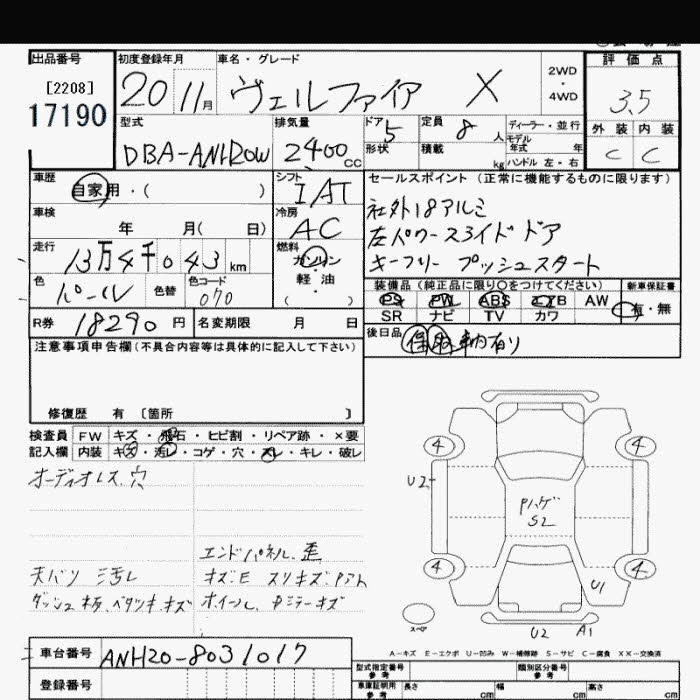 出品番号 初度登録年月 車名・グレード 評価点
[2208] 20 11月 ヴェルファイア X 2WD 4WD 3.5
17190
型式 排気量 ドア 5 定員 8人 ディーラー・並行 外装 内装
DBA-ANH20W 2400cc 形状 積載 kg モデル年式 年 C C
ハンドル 左・右
車歴 シフト セールスポイント (正常に機能するものに限ります)
自家用・( ) IAT 社外18アルミ
車検 冷房 左パワースライドドア
年 月( 日) AC キーフリー プッシュスタート
走行 13万4千043km 燃料 ガソリン・軽油・( )
色 パール 色替 色コード 070
装備品 (純正品に限り○をつけてください) 新車保証書
PS PW ABS エアB AW 有・無
SR ナビ TV カワ
R券 18290円 名変期限 月 日
後日品 保 取 車内有り
注意事項申告欄 (不具合内容等は具体的に記入して下さい)
修復歴 有 〔箇所 〕
検査員 FW キズ・飛石・ヒビ割・リペア跡・×要
記入欄 内装 キズ・汚レ・コゲ・穴・スレ・キレ・破レ
オーディオレス、穴
エンドパネル、歪
天バリ シ汚レ キズ・E スリキズ・Pアト
ダッシュ板、ベタツキ、キズ ホイール、Dミラーキズ
4 4
U2
Pハゲ
S2
4 4
U1
スペア
U2 A1
車台番号 ANH20-8031017
登録番号
A-キズ E-エクボ U-凹み W-補修跡 S-サビ C-腐食 XX-交換済
型式指定番号 参考 類別区分番号 参考
車庫証明用 参考 長さ cm 幅 cm 高さ cm